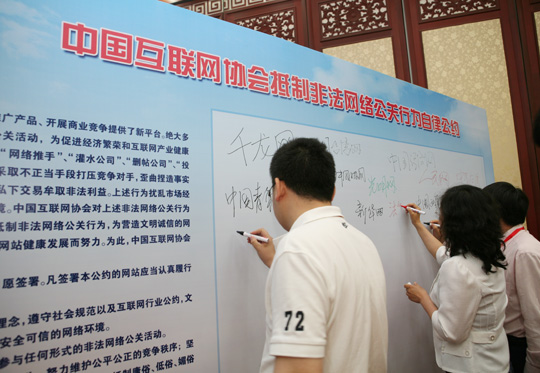 中国互联网协会抵制非法网络公关行为自律公约
推广产品、开展商业竞争提供了新平台,绝大多
公关活动，为促进经济繁荣和互联网产业健康
“网络推手”、“灌水公司”、“删帖公司”、“投
采取不正当手段打压竞争对手，歪曲捏造事实
私下交易牟取非法利益。上述行为扰乱市场经
境。中国互联网协会对上述非法网络公关行为
抵制非法网络公关行为，为营造文明诚信的网
网站健康发展而努力。为此，中国互联网协会
愿签署。凡签署本公约的网站应当认真履行
理念，遵守社会规范以及互联网行业公约，文
安全可信的网络环境。
参与任何形式的非法网络公关活动。
努力维护公平公正的竞争秩序；坚
制庸俗、低俗、媚俗
千龙网
中国青年
新华网
72